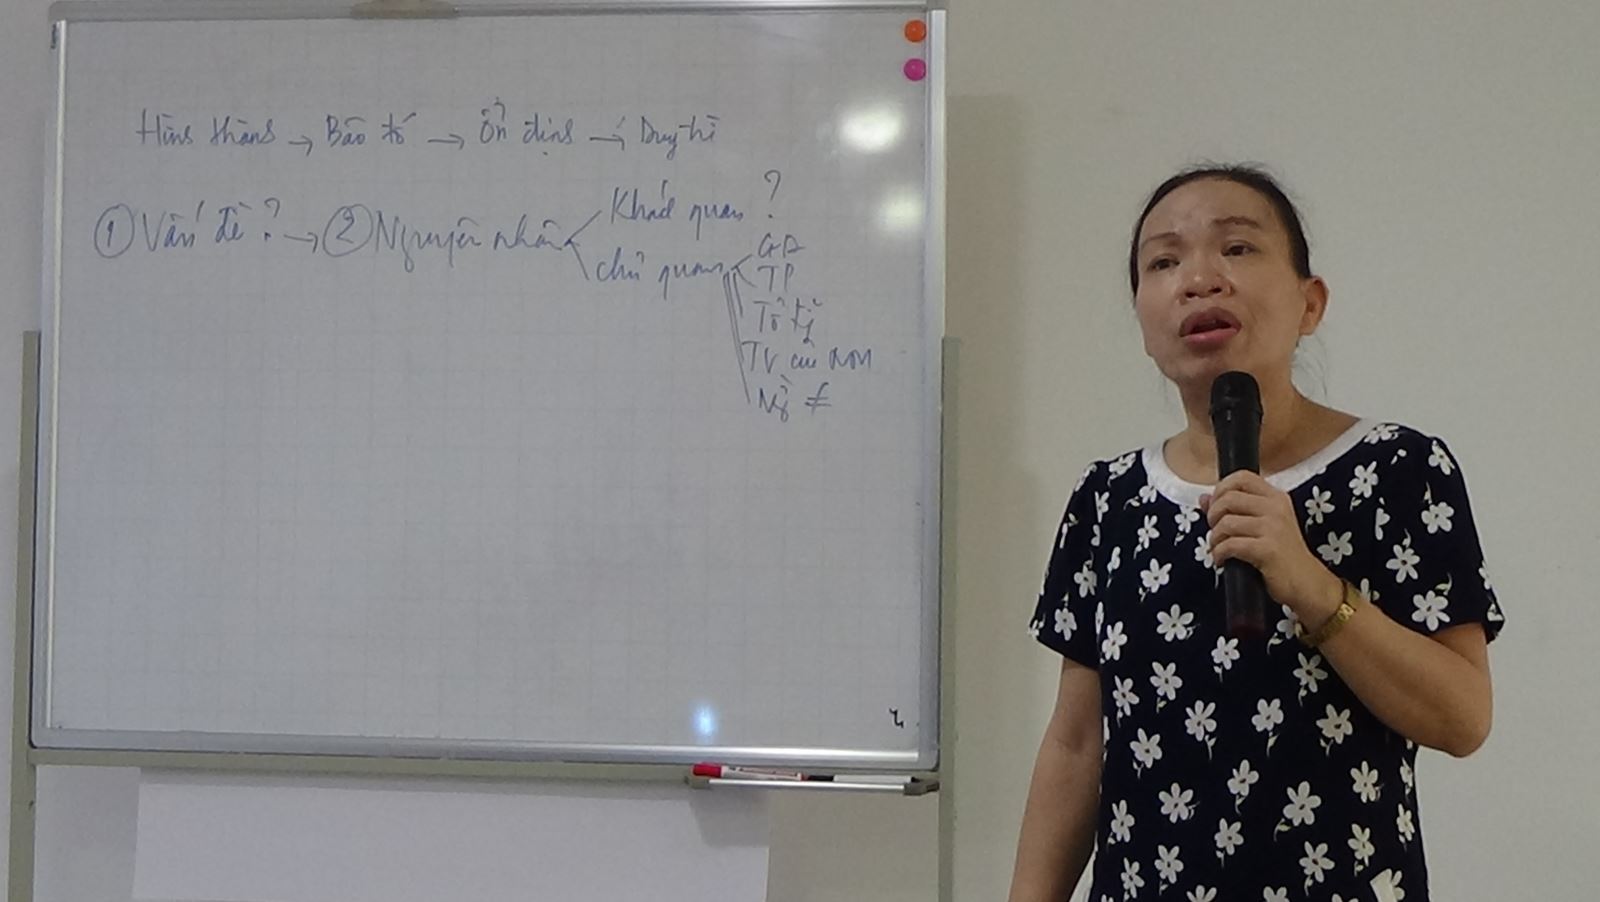 Hình thành → Bão tố → Ổn định → Duy trì
① Vấn đề? → ② Nguyên nhân
Khách quan ?
chủ quan
GĐ
TP
Tổ
TV của nhóm
≠